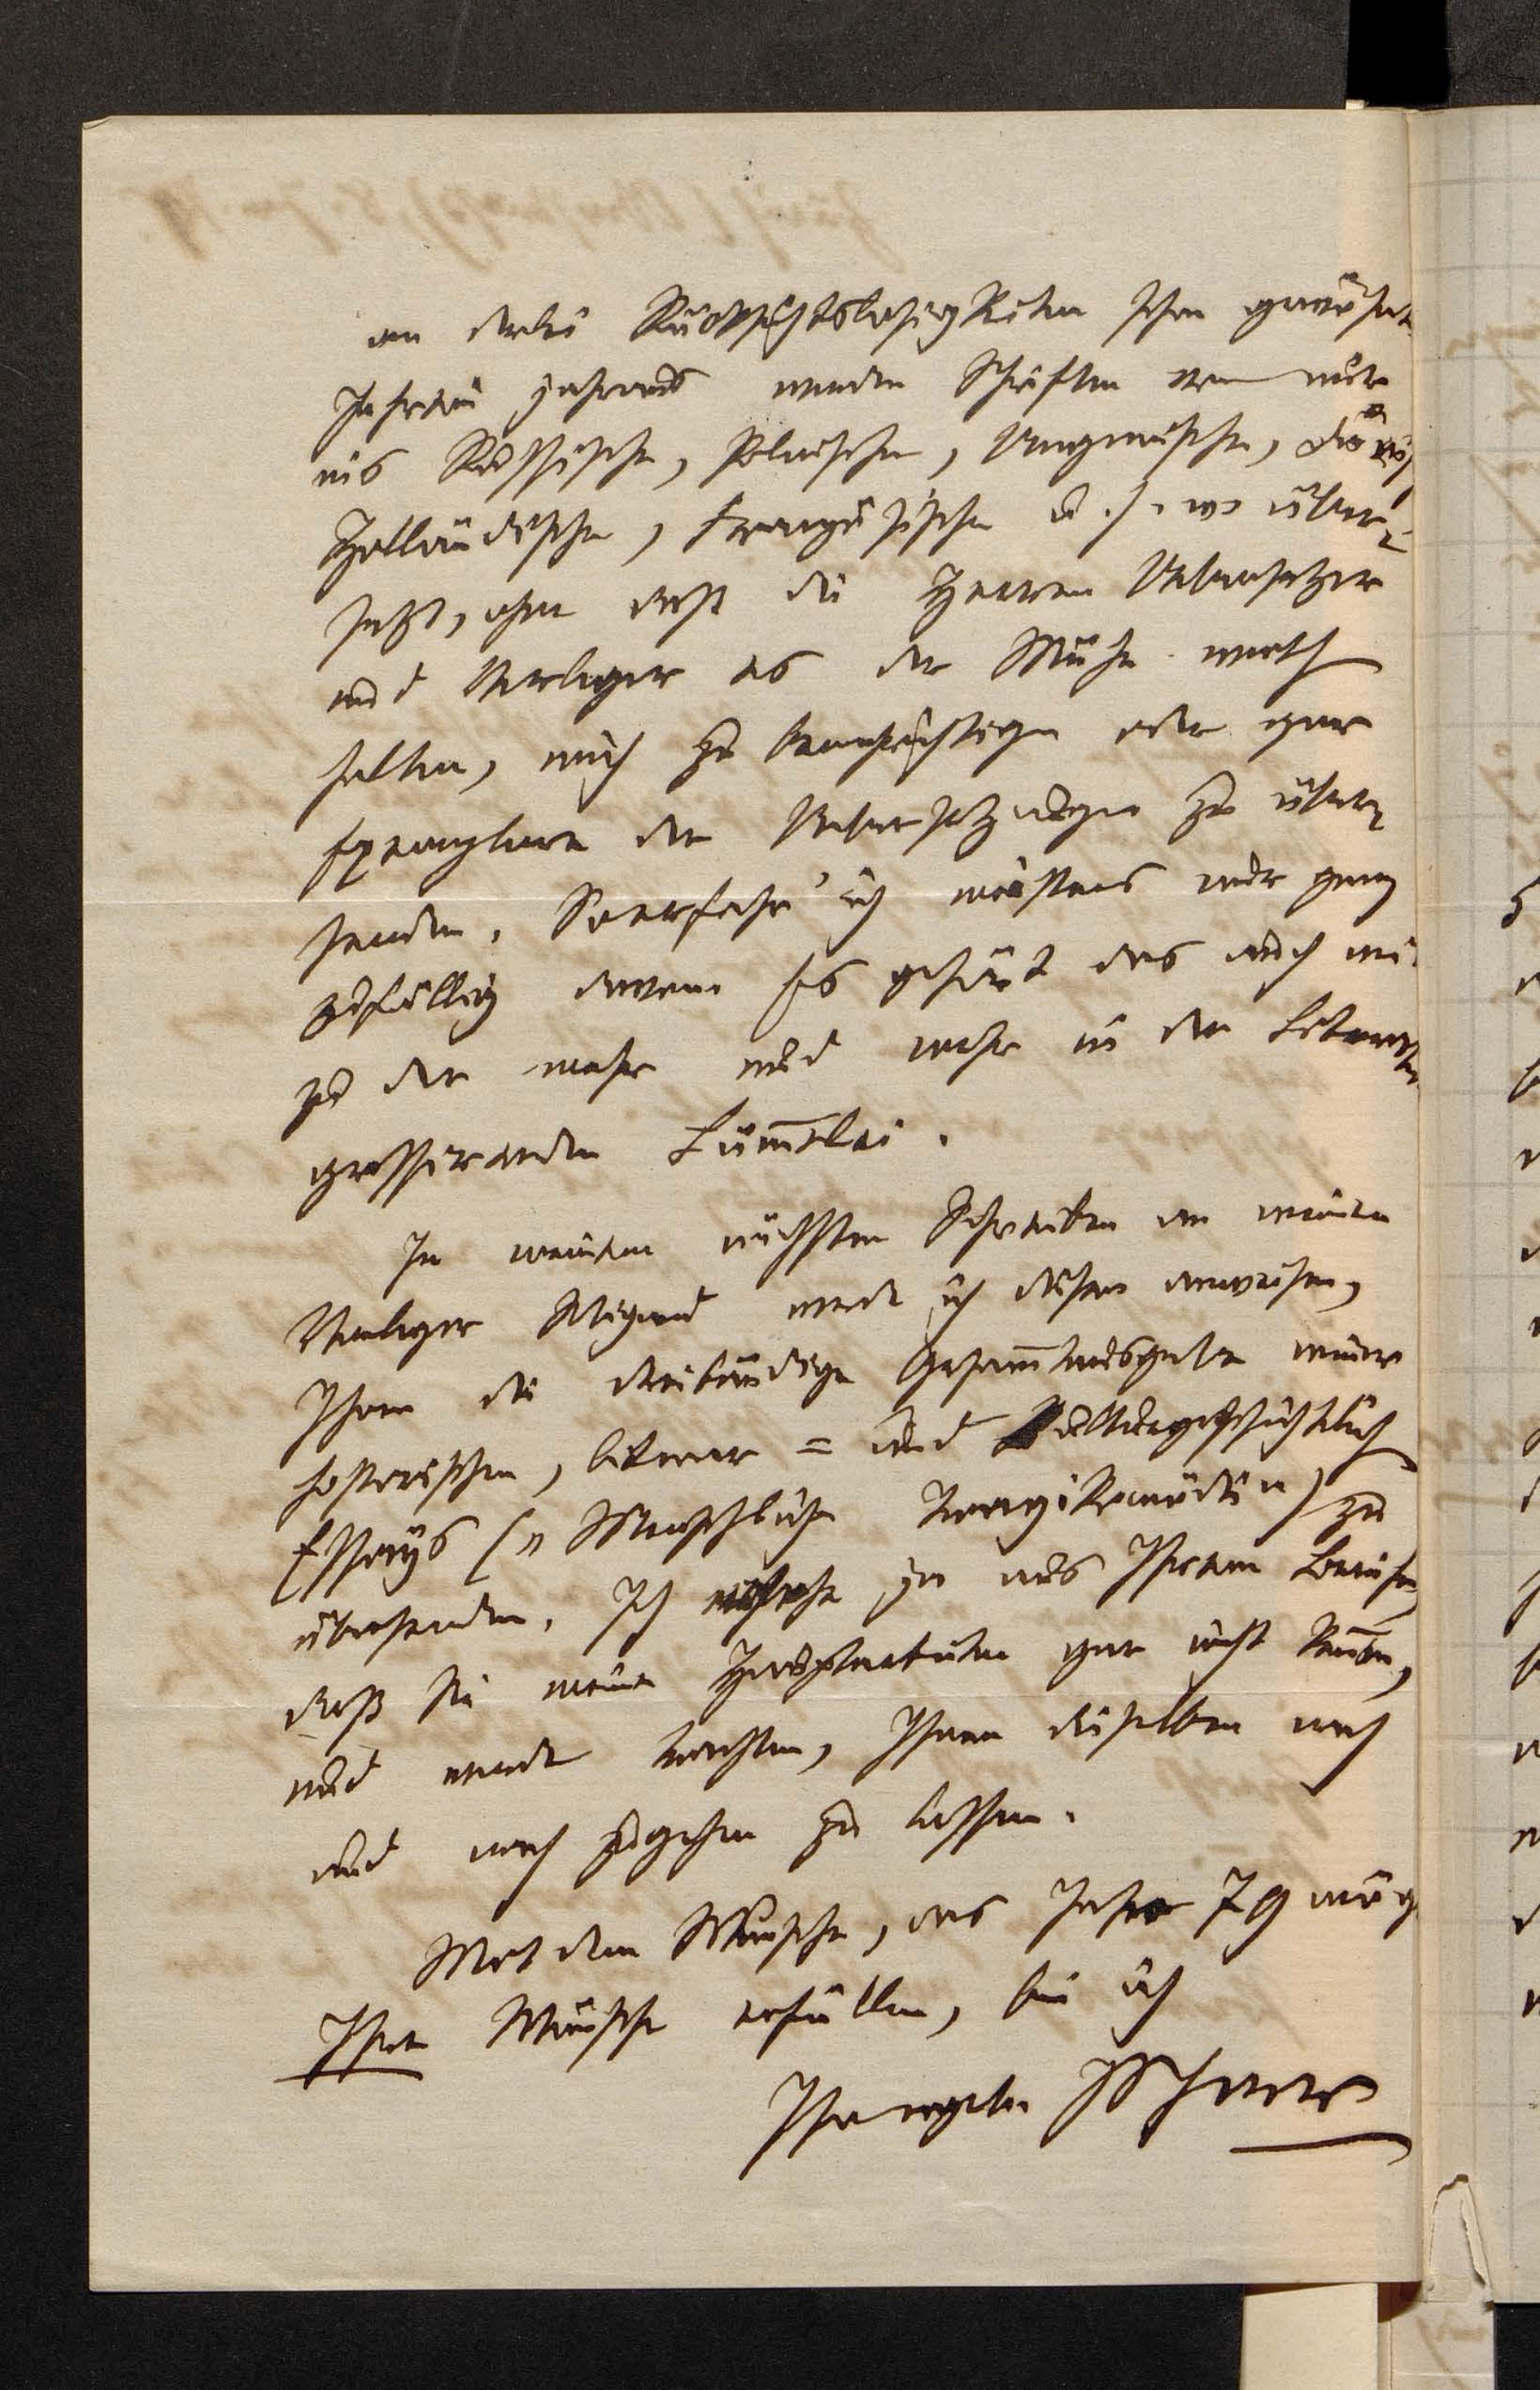 an derlei Rücksichtslosigkeiten schon gewöhnt.
Jahrein jahraus werden Schriften von mir
ins Russische, Polnische, Ungarische,
Holländische, Französische u. s. w. über-
setzt, ohne daß die Herren Uebersetzer
und Verleger es der Mühe werth
halten, mich zu benachrichtigen oder gar
Exemplare der Uebersetzungen zu über-
senden. So erfahr' ich meistens nur ganz
zufällig davon. Es gehört das auch mit
zu der mehr und mehr in der Literatur
grassirenden Lümmelei.
In meinem nächsten Schreiben an meinen
Verleger Wigand werde ich diesen anweisen,
Ihnen die dreibändige Gesammtausgabe meiner
historischen, literar- und kulturgeschichtlich
Essays („Menschliche Tragikomödie") zu
übersenden. Ich ersehe ja aus Ihrem Briefe,
daß Sie meine Hauptarbeiten gar nicht kennen,
und werde trachten, Ihnen dieselben nach
und nach zugehen zu lassen.
Mit dem Wunsche, das Jahr 79 möge
Ihre Wünsche erfüllen, bin ich
Ihr ergeb. JScherr